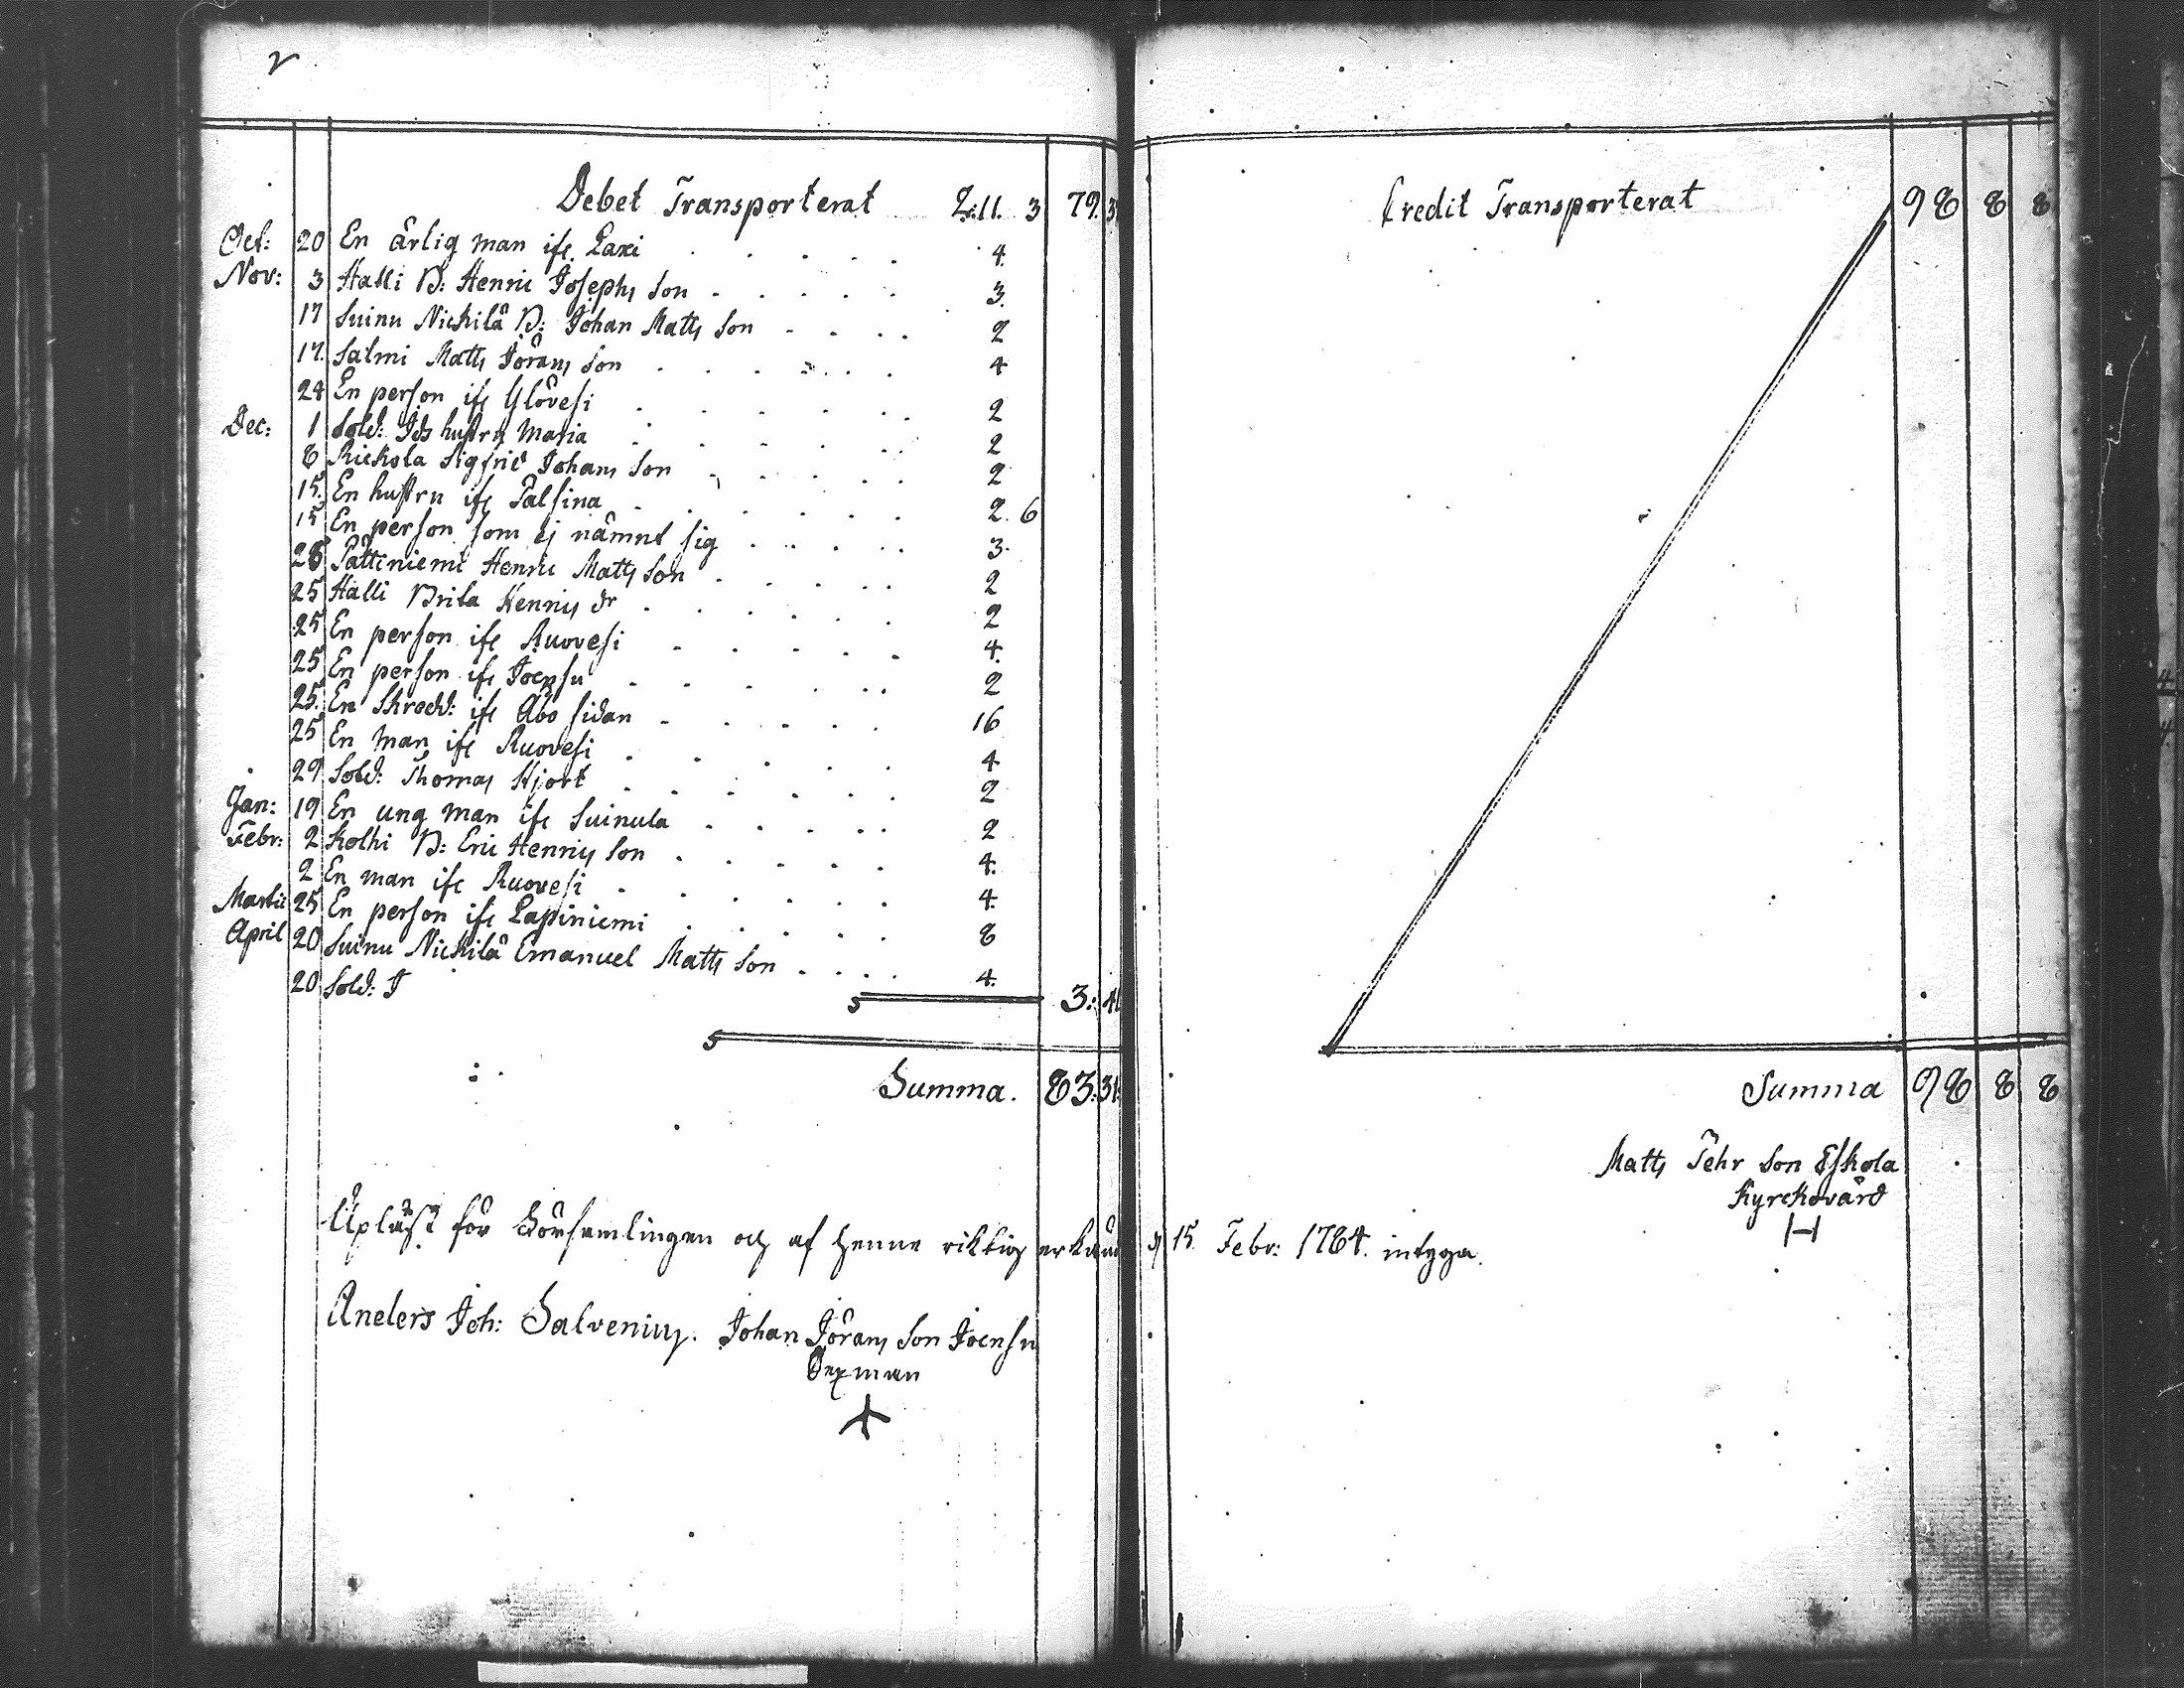 2
Debet Transporterat 2:11. 3 79. 3
Oct: 20 En ärlig man ifr. Laxi 4.
Nov: 3 Halli B: Henric Josephs Son 3.
17 Suinu Nickilä B: Johan Matts Son 2
17. Salmi Matts Jörans Son 4
24 En person ifr Ylövesi 2
Dec: 1 Sold: Ids hustru Maria 2
8 Rickola Sigfrid Johans Son 2
15. En hustru ifr Talsina 2. 6
15 En person som ej nämnt sig 3.
26 Pättiniemi Henric Matts Son 2
25 Halli Brita Henrics dr 2
25 En person ifr Ruovesi 4.
25 En person ifr Joensu 2
25. En Skredd: ifr Åbo sidan 16
25 En man ifr Ruovesi 4
29 Sold: Thomas Hjort 2
Jan: 19 En ung man ifr Suinula 2
Febr: 2 Kolhi B: Eric Henrics Son 4.
2 En man ifr Ruovesi 4.
Martii 25 En person ifr Lapiniemi 8
April 20 Suinu Nickilä Emanuel Matts Son 4.
20 Sold: J
3: 4
Summa. 83: 31:
Upläst för Församlingen och af henne riktig erkänd d 15. Febr: 1784. intyga.
Anders Joh: Salvenius. Johan Jörans Son Joensu
Sexman
Credit Transporterat 98 8 8
Summa 98 8 8
Matts Tehr Son Eskola
Kyrckovärd
H